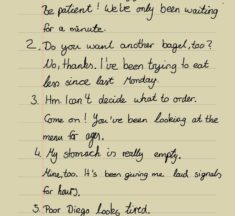 Be patient! We've only been waiting
for a minute.
2. Do you want another bagel, too?
No, thanks. I've been trying to eat
less since last Monday.
3. Hm. I can't decide what to order.
Come on! You've been looking at the
menu for ages.
4. My stomach is really empty.
Mine, too. It's been giving me laid signals
for hours.
5. Poor Diego looks tired.